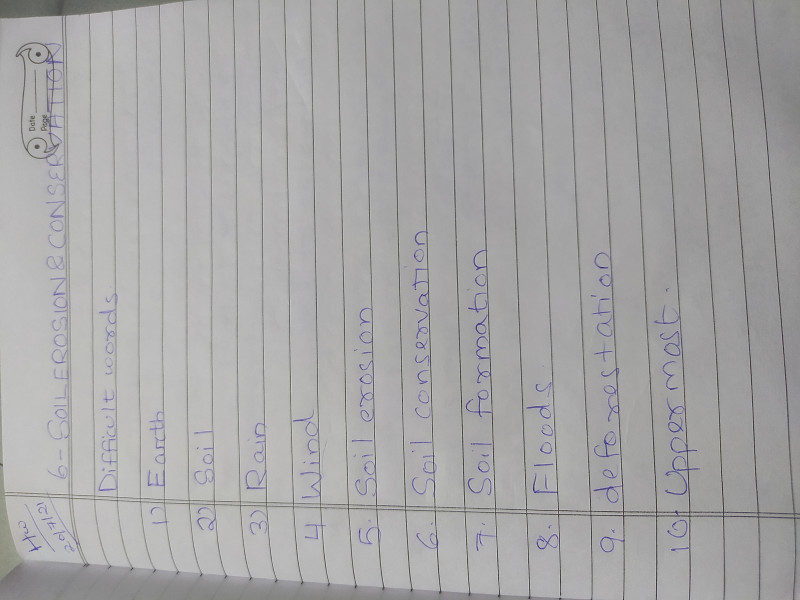 Date
Page
HW
20/7/21
6-SOIL EROSION & CONSERVATION
Difficult words.
1) Earth
2) Soil
3) Rain
4 Wind
5. Soil erosion
6. Soil conservation
7. Soil formation
8. Floods.
9. deforestation
10. Uppermost.